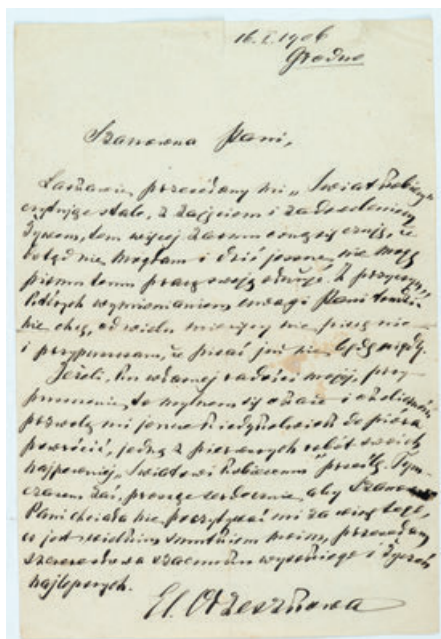 16. I. 1906
Grodno
Szanowna Pani,
Łaskawie przesyłany mi „Świat Kobiecy”
czytuję stale, z zajęciem i zadowoleniem
żywem, tem więcej czuję, że
dotąd nie mogłam i dziś jeszcze nie mogę
pismu temu pracą swoją służyć. Z przyczyn,
których wymienianiem uwagi Pani
nie chcę, od wielu miesięcy nie piszę nic
i przypuszczam, że pisać już nie będę nigdy.
Jeżeli, ku własnej radości mojej, przy-
puszczenie to mylnem się okaże i okoliczności
pozwolą mi jeszcze kiedykolwiek do pióra
powrócić, jedną z pierwszych robót swoich
najpewniej „Światowi Kobiecemu” prześlę. Tym-
czasem zaś, proszę serdecznie, aby Szanowna
Pani chciała nie poczytywać mi za winę tego,
co jest wielkim smutkiem moim, przesyłam
szacunku wysokiego i życzeń
najlepszych.
El. Orzeszkowa